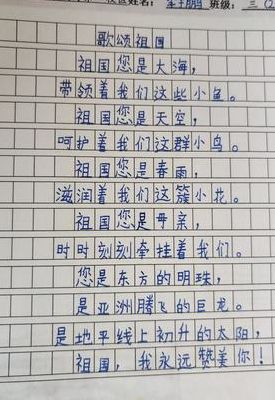 校区姓名: 班级: 三
歌颂祖国
祖国您是大海,
带领着我们这些小鱼。
祖国您是天空,
呵护着我们这群小鸟。
祖国您是春雨,
滋润着我们这簇小花。
祖国您是母亲,
时时刻刻牵挂着我们。
您是东方的明珠,
是亚洲腾飞的巨龙。
是地平线上初升的太阳,
祖国,我永远赞美你!